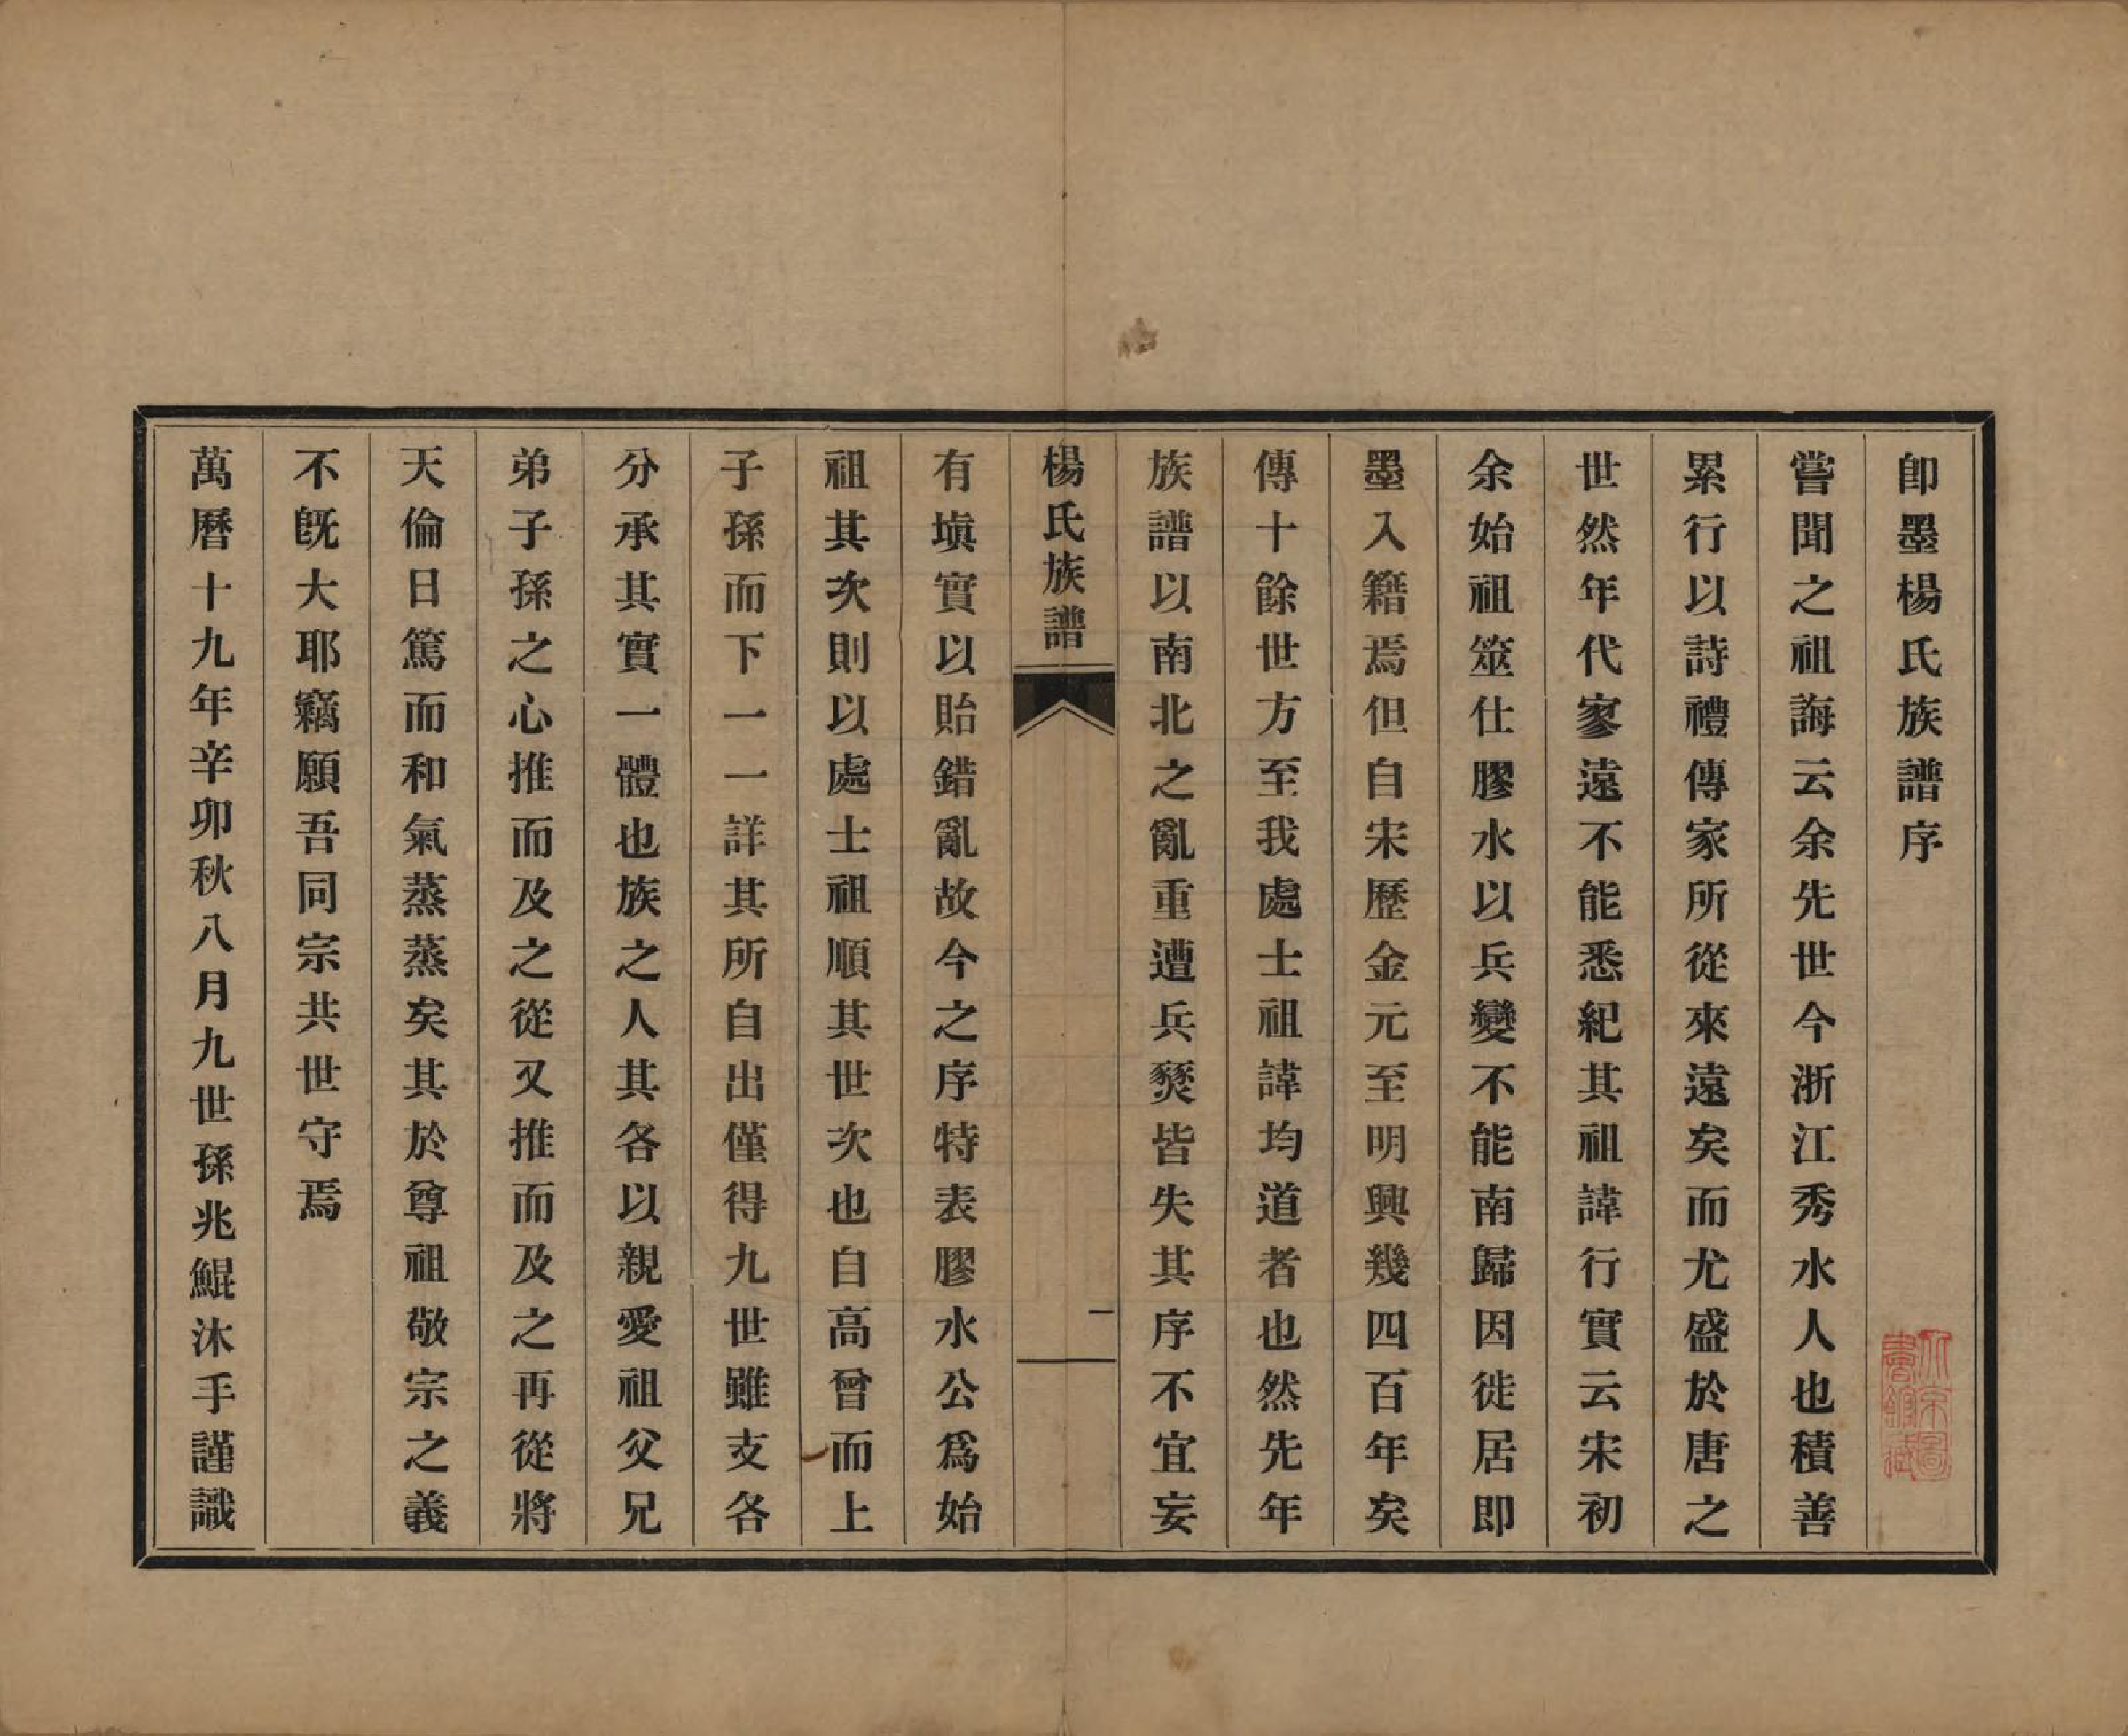 卽墨楊氏族譜序
嘗聞之祖誨云余先世今浙江秀水人也積善
累行以詩禮傳家所從來遠矣而尤盛於唐之
世然年代寥遠不能悉紀其祖諱行實云宋初
余始祖筮仕膠水以兵變不能南歸因徙居卽
墨入籍焉但自宋歷金元至明興幾四百年矣
傳十餘世方至我處士祖諱均道者也然先年
族譜以南北之亂重遭兵燹皆失其序不宜妄
楊氏族譜
一
有塡實以貽錯亂故今之序特表膠水公爲始
祖其次則以處士祖順其世次也自高曾而上
子孫而下一一詳其所自出僅得九世雖支各
分承其實一體也族之人其各以親愛祖父兄
弟子孫之心推而及之從又推而及之再從將
天倫日篤而和氣蒸蒸矣其於尊祖敬宗之義
不旣大耶竊願吾同宗共世守焉
萬曆十九年辛卯秋八月九世孫兆鯤沐手謹識
北京圖
書館藏